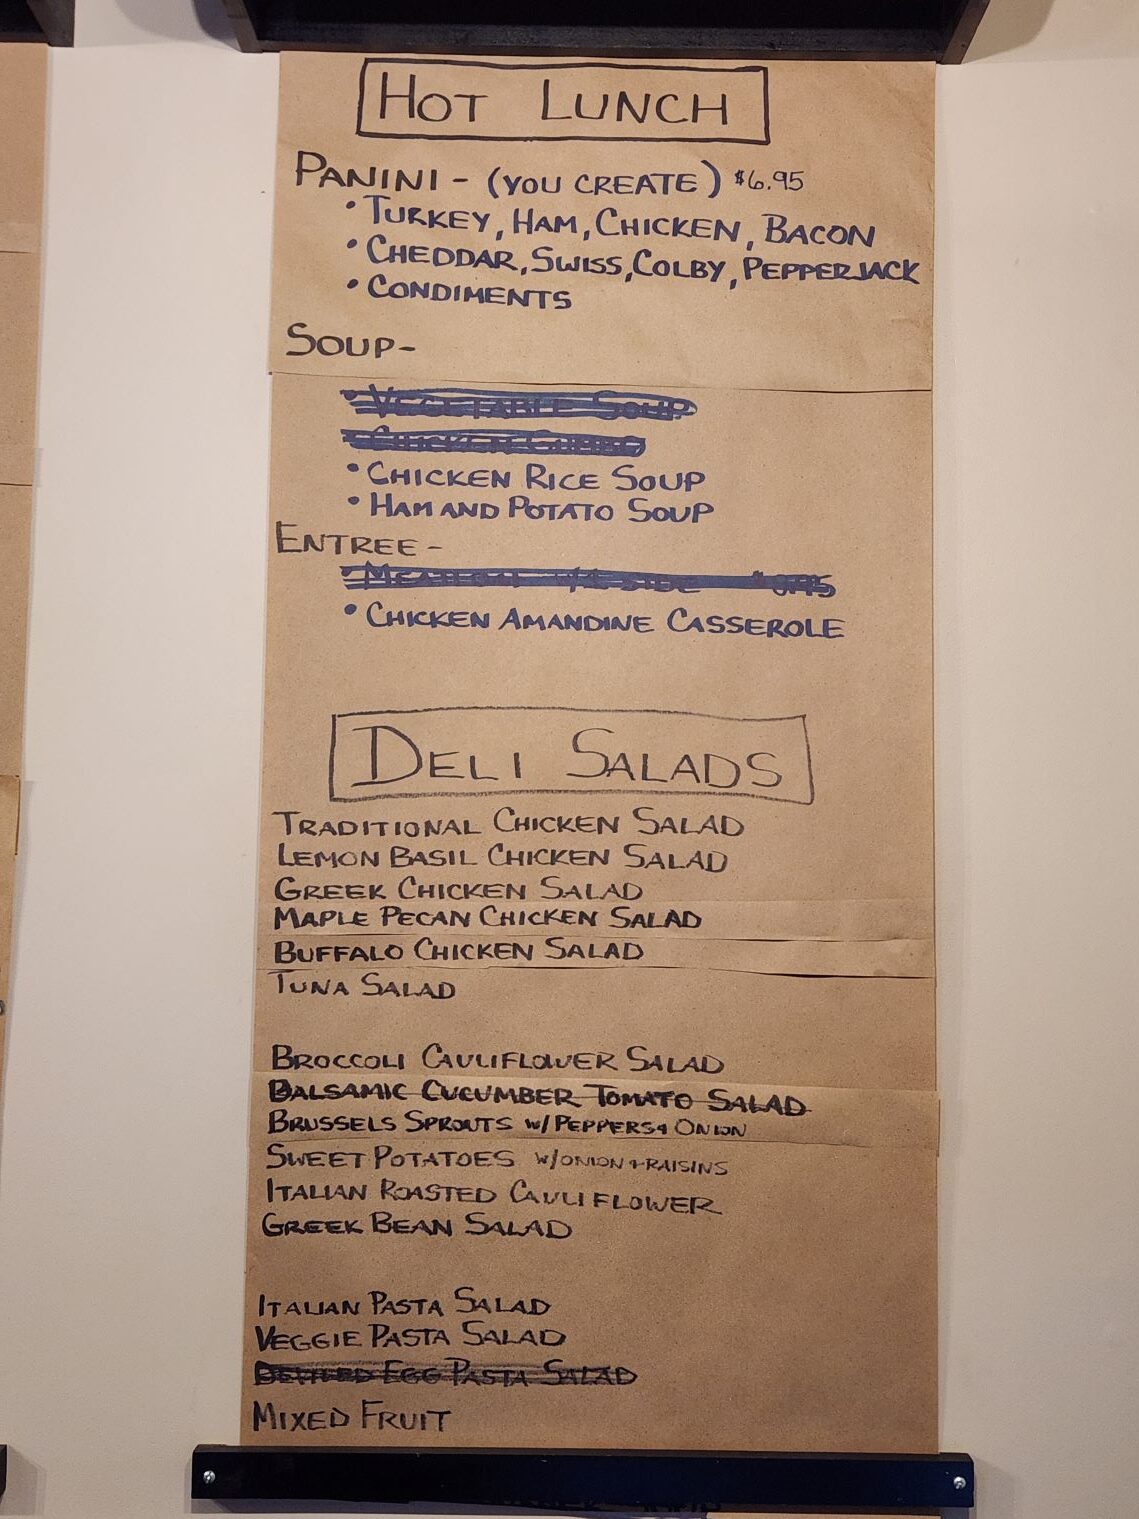 HOT LUNCH
PANINI - (YOU CREATE) $6.95
• TURKEY, HAM, CHICKEN, BACON
• CHEDDAR, SWISS, COLBY, PEPPERJACK
• CONDIMENTS
SOUP-
• VEGETABLE SOUP
• CHICKEN GUMBO
• CHICKEN RICE SOUP
• HAM AND POTATO SOUP
ENTREE -
• MEATLOAF W/ SIDE
• CHICKEN AMANDINE CASSEROLE
DELI SALADS
TRADITIONAL CHICKEN SALAD
LEMON BASIL CHICKEN SALAD
GREEK CHICKEN SALAD
MAPLE PECAN CHICKEN SALAD
BUFFALO CHICKEN SALAD
TUNA SALAD
BROCCOLI CAULIFLOWER SALAD
BALSAMIC CUCUMBER TOMATO SALAD
BRUSSELS SPROUTS W/ PEPPERS & ONION
SWEET POTATOES W/ONION + RAISINS
ITALIAN ROASTED CAULIFLOWER
GREEK BEAN SALAD
ITALIAN PASTA SALAD
VEGGIE PASTA SALAD
DEVILED EGG PASTA SALAD
MIXED FRUIT